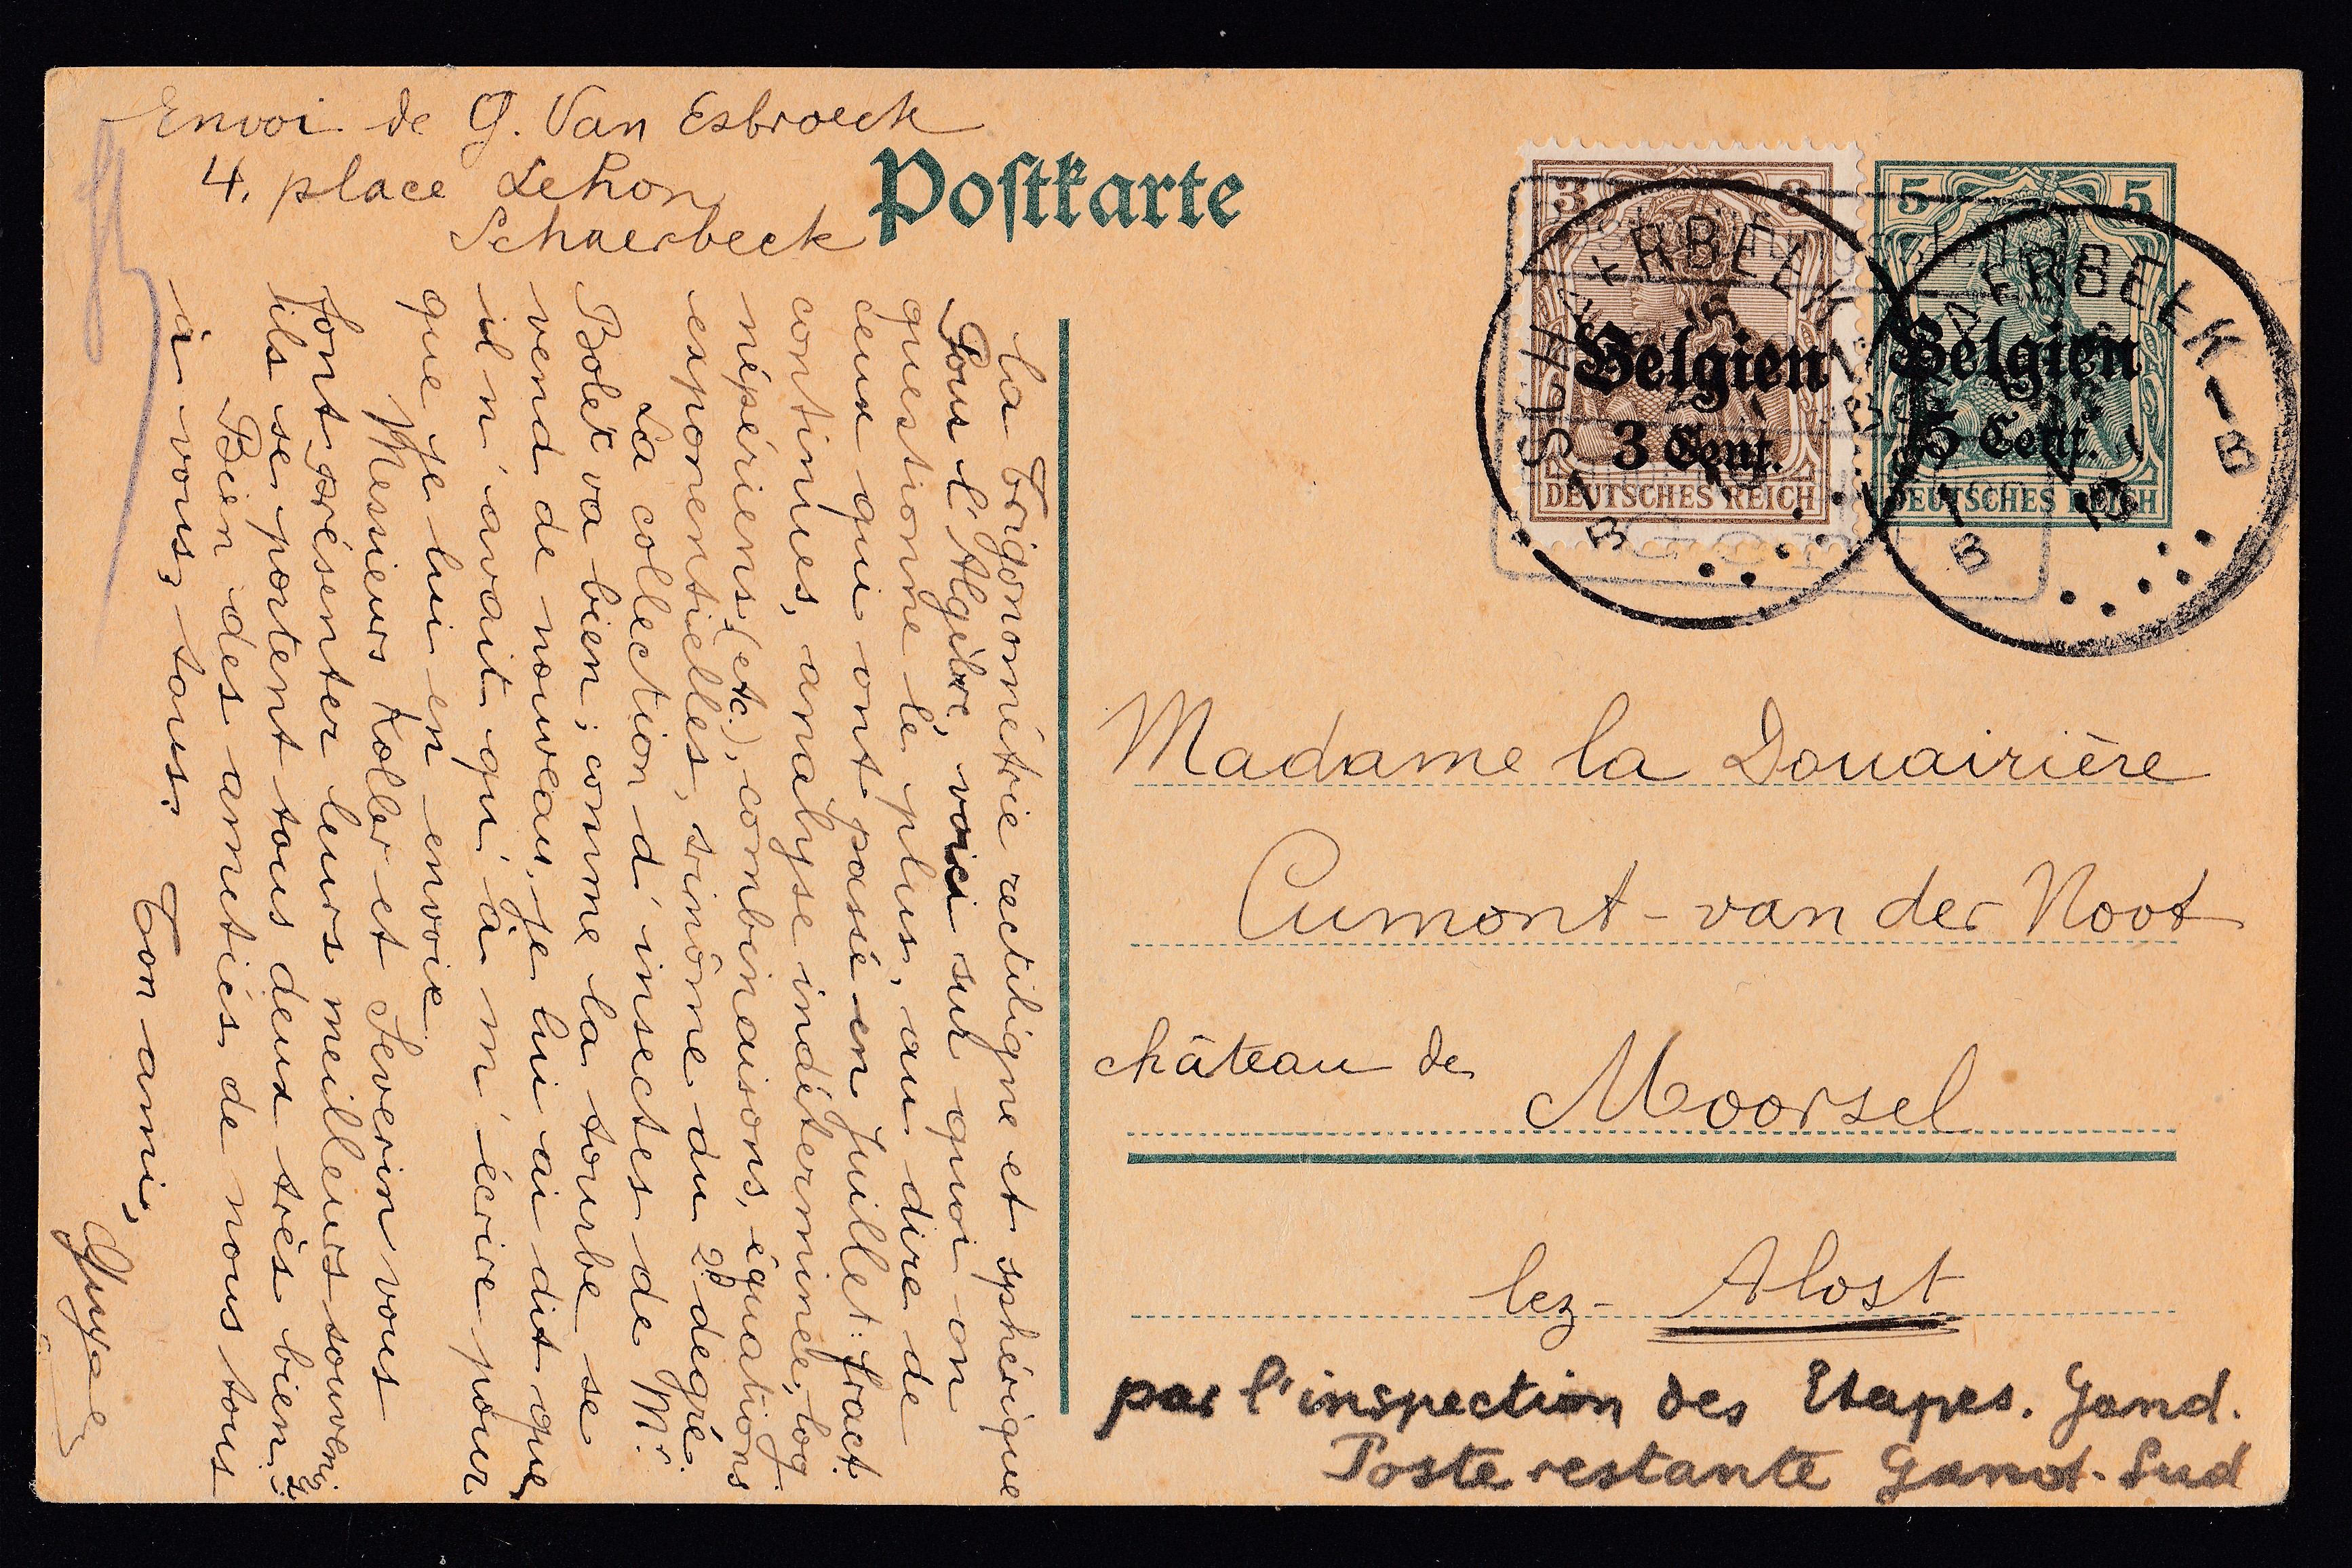 Envoi de G. Van Esbroeck
4. place Lehon
Schaerbeek
Postkarte
3 3
Belgien
3 Cent.
DEUTSCHES REICH
5 5
Belgien
5 Cent.
DEUTSCHES REICH
SCHAERBEEK
SCHAERBEEK 1 B
Madame la Douairière
Cumont - van der Noot
château de Moorsel
lez - Alost
par l'inspection des Etapes. Gand.
Poste restante Gand-Sud
la trigonométrie rectiligne et sphérique
Pour l'Algèbre, voici sur quoi on
questionne le plus, au dire de
ceux qui ont passé en Juillet: fract.
continues, analyse indéterminée, log.
népériens (etc.), combinaisons, équations
exponentielles, trinôme du 2d degré.
La collection d'insectes de Mr
Bolet va bien; comme la tourbe se
vend de nouveau, je lui ai dit que
il n'avait qu'à m'écrire pour
que je lui en envoie
Messieurs Koller et Severin vous
font présenter leurs meilleurs souvenirs
ils se portent tous deux très bien.
Bien des amitiés de nous tous
à vous, tous.
Ton ami,
Guy